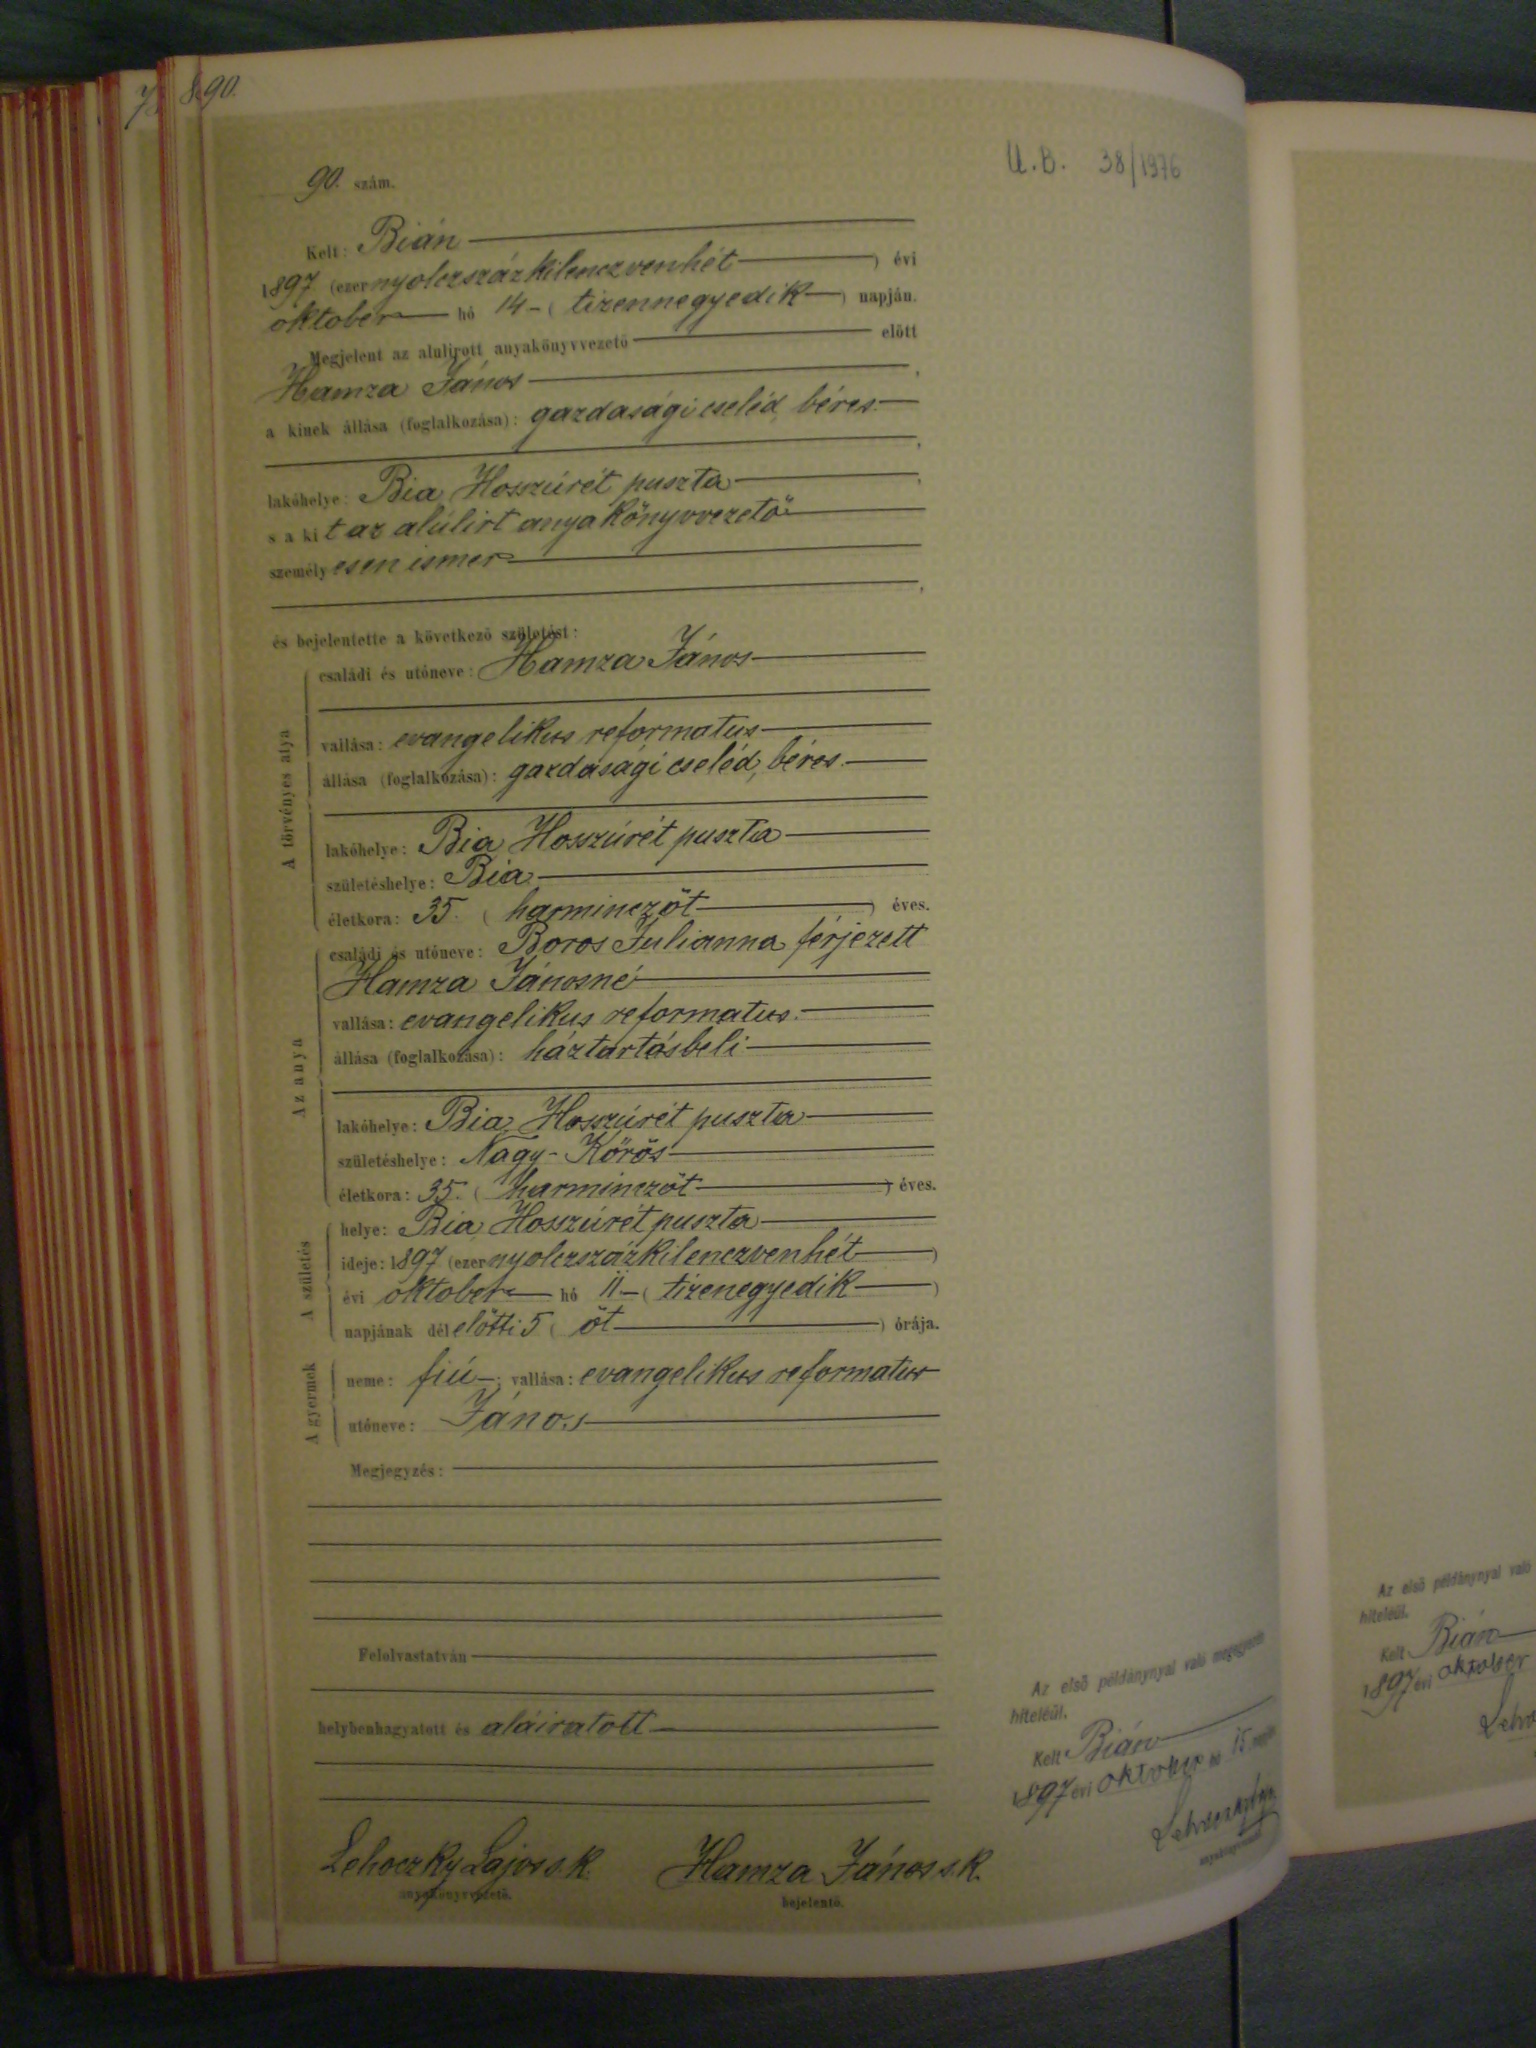 7 890.
U.B. 38/1976
90. szám.
Kelt: Bián
1897 (ezer nyolczszázkilenczvenhét ) évi
oktober hó 14 - ( tizennegyedik ) napján.
Megjelent az alulirott anyakönyvvezető előtt
Hamza János ,
a kinek állása (foglalkozása): gazdasági cseléd, béres
,
lakóhelye: Bia Hosszúrét puszta ,
s a kit az alúlirt anyakönyvvezető
személyesen ismer
,
és bejelentette a következő születést:
A törvényes atya
családi és utóneve: Hamza János
vallása: evangelikus reformatus
állása (foglalkozása): gazdasági cseléd, béres.
lakóhelye: Bia Hosszúrét puszta
születéshelye: Bia
életkora: 35. ( harminczöt ) éves.
Az anya
családi és utóneve: Boros Julianna férjezett
Hamza Jánosné
vallása: evangelikus reformatus.
állása (foglalkozása): háztartásbeli
lakóhelye: Bia, Hosszúrét puszta
születéshelye: Nagy-Kőrös
életkora: 35. ( harminczöt ) éves.
A születés
helye: Bia, Hosszúrét puszta
ideje: 1897 (ezer nyolczszázkilenczvenhét )
évi oktober hó 11 - ( tizenegyedik )
napjának délelőtti 5 ( öt ) órája.
A gyermek
neme: fiú ; vallása: evangelikus reformatus
utóneve: János
Megjegyzés:
Felolvastatván
helybenhagyatott és aláiratott
Lehoczky Lajos s.k. Hamza János s.k.
anyakönyvvezető. bejelentő.
Az első példánynyal való megegyezés
hiteléül.
Kelt Bián
1897 évi oktober hó 15 napján
Lehoczky Lajos
anyakönyvvezető
Az első példánynyal való
hiteléül.
Kelt Bián
1897 évi oktober